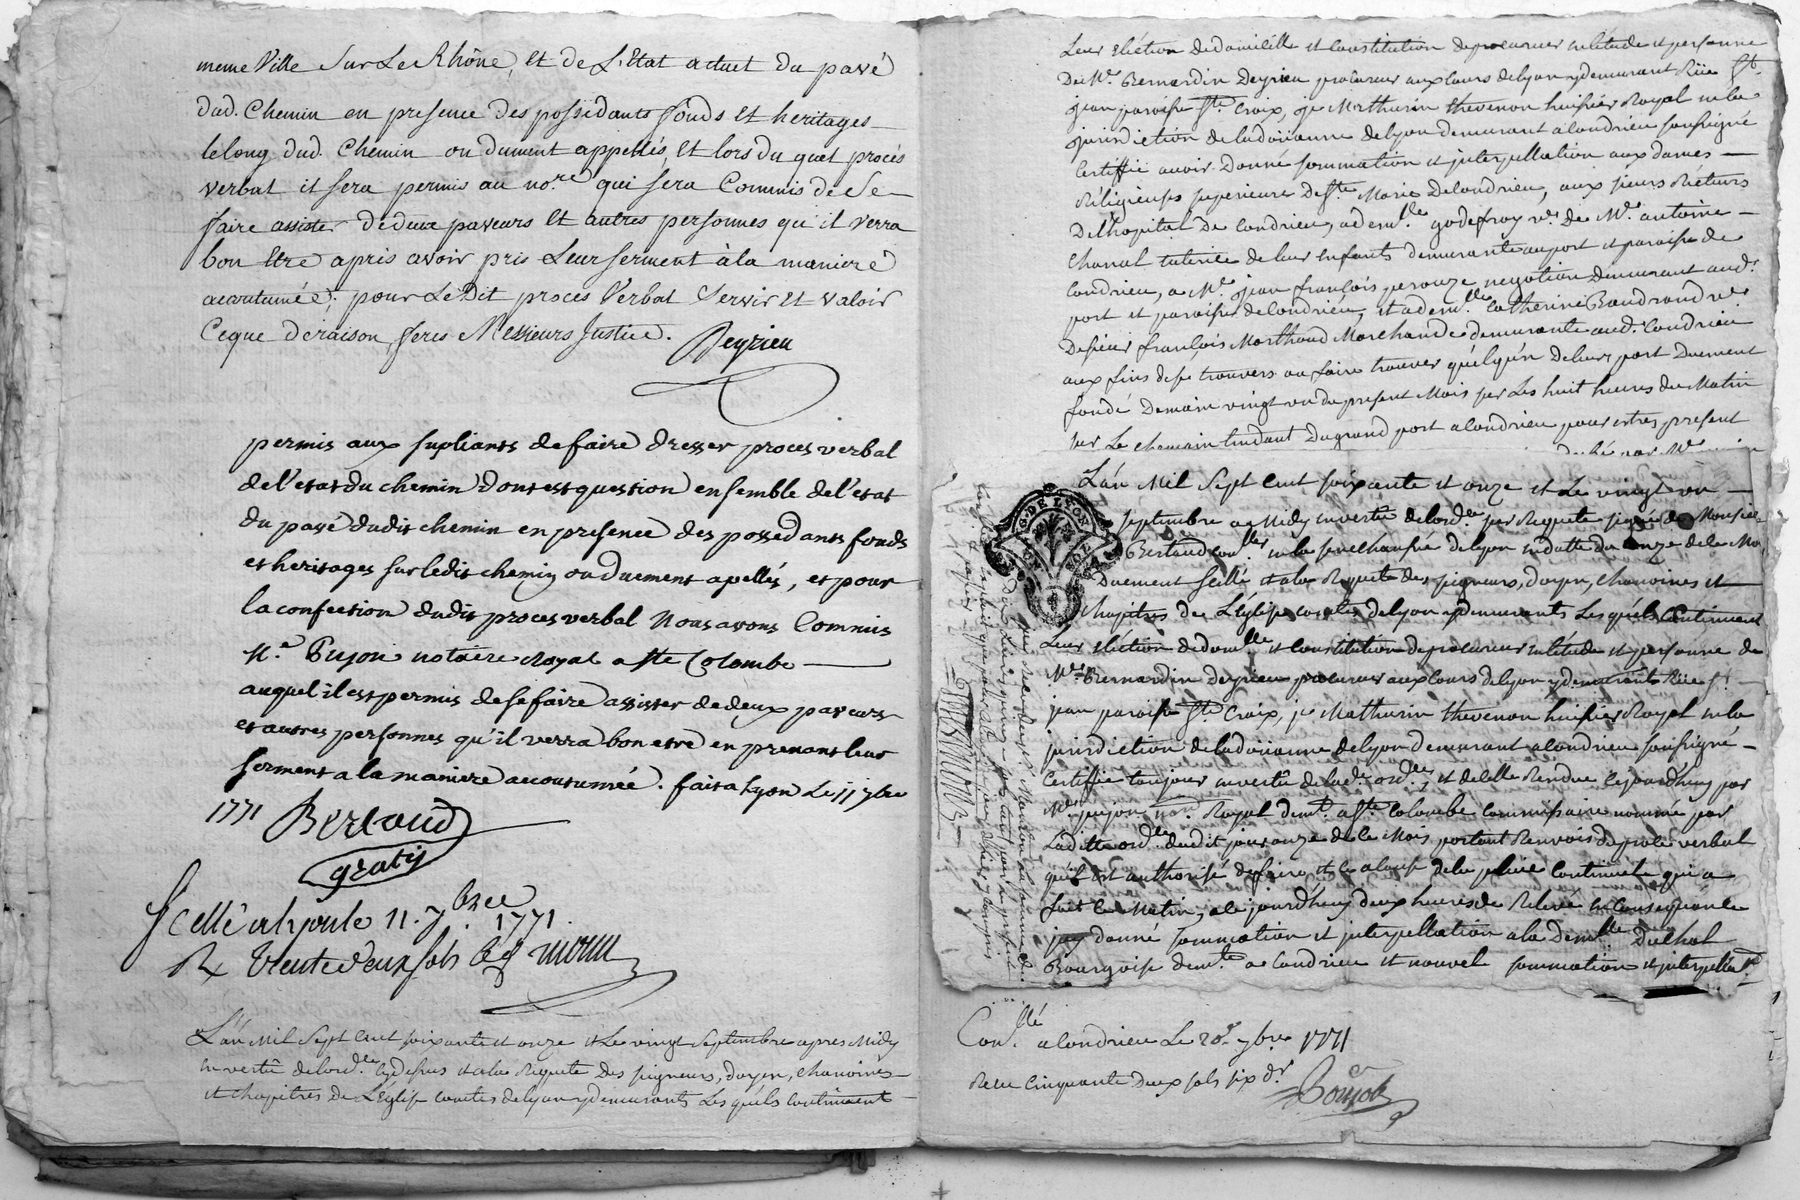 meme Ville Sur Le Rhône, et de L'Etat actuel du pavé
dud. Chemin en presence des possidants fonds et heritages
le long dud. Chemin ou dument appellés, et lors du quel procés
verbal il sera permis au no.re qui sera Commis de Se
faire assister de deux paveurs et autres personnes qu'il verra
bon Etre aprés avoir pris Leur serment à la maniere
acoutumée; pour Le Dit procés Verbal Servir et valoir
Ce que de raison, ferés Messieurs Justice. Deyrieu
permis aux supliants de faire dresser proces verbal
de l'etat du chemin dont est question ensemble de l'etat
du pavé dudit chemin en presence des possedants fonds
et heritages sur ledit chemin ou duement apellés, et pour
la confection dudit proces verbal Nous avons Commis
M.e Pujon notaire Royal a Ste Colombe
auquel il est permis de se faire assister de deux paveurs
et autres personnes qu'il verra bon etre en prenant leur
serment a la maniere accoutumée. fait a Lyon Le 11 7bre
1771 Bertaud
gratis
Scellé a Lyon le 11. 7bre 1771.
Rx Trente deux sols
L'an Mil Sept Cent soixante et onze et Le vingt Septembre apres Midy
en vertû de l'ord.ce cy dessus et a la Requete des seigneurs, doyen, chanoines
et chapitres de L'Eglise comtes de lyon y demeurants Lesquels continuent
Leur election de domicille et constitution de procureur en l'etude et personne
De Me. Bernardin Deyrieu procureur aux cours de lyon y demeurant Rüe St.
jean paroisse Ste. Croix, je Mathurin Thevenon huissier Royal en la
jurisdiction de la doüanne de lyon demeurant a Condrieu soussigné
Certiffie avoir donné sommation et interpellation aux dames
Réligieuses superieure de Ste. Marie de Condrieu, aux sieurs Recteurs
De l'hopital de Condrieu, a dem.lle godefroy v.e de Me. antoine
Chanal tutrice de leur enfants demeurante au port et paroisse de
Condrieu, a Me. jean françois perouze negotien demeurant aud.
port et paroisse de Condrieu, et a dem.lle Catherine Baudrand v.e
de sieur françois Morthaud Marchande demeurante aud. Condrieu
aux fins de se trouver ou faire trouver quelqu'un de leur part Duement
fondé Demain vingt un du present Mois sur Les huit heures du Matin
sur Le chemain tendant du grand port a Condrieu pour estres present
G. DE LYON
L'an Mil Sept Cent soixante et onze et Le vingt un
septembre a Midy en vertû de l'ord.ce sur Requete signée de Monsieur
Bertaud con.ller en la senechaussée de lyon en datte du onze de ce Mois
Duement scellé et a la Requete des seigneurs, doyen, chanoines et
chapitres de L'Eglise comtes de lyon y demeurants Lesquels Continuent
Leur election de dom.lle et constitution de procureur en l'étude et personne de
Me. Bernardin deyrieu procureur aux cours de lyon y demeurant Rüe St.
jean paroisse Ste. Croix, je Mathurin thevenon huissier Royal en la
jurisdiction de la doüanne de lyon demeurant a Condrieu soussigné
Certiffie toujour en vertû de lad.e ord.ce et de celle Rendue cejourd'huy par
Me. pujon no.re Royal dem.t a Ste. Colombe commissaire nommé par
Laditte ord.ce dudit jour onze de ce Mois portant Renvoi du procé verbal
qu'il est authorisé de faire et a cause de la pluïe continuele qui a
fait ce Matin, a cejourd'huy deux heures de Relevé en Consequance
jay donné sommation et interpellation a la dem.lle Duchol
Bourgoise dem.te a Condrieu et nouvel sommation et interpella.on
Con.llé a Condrieu Le 20e 7bre 1771
Recu Cinquante Deux sols six d.rs